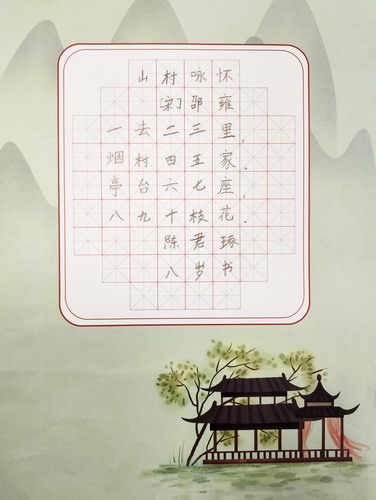 山村咏怀
[宋]邵雍
一去二三里，
烟村四五家。
亭台六七座，
八九十枝花。
陈君琢
八岁书